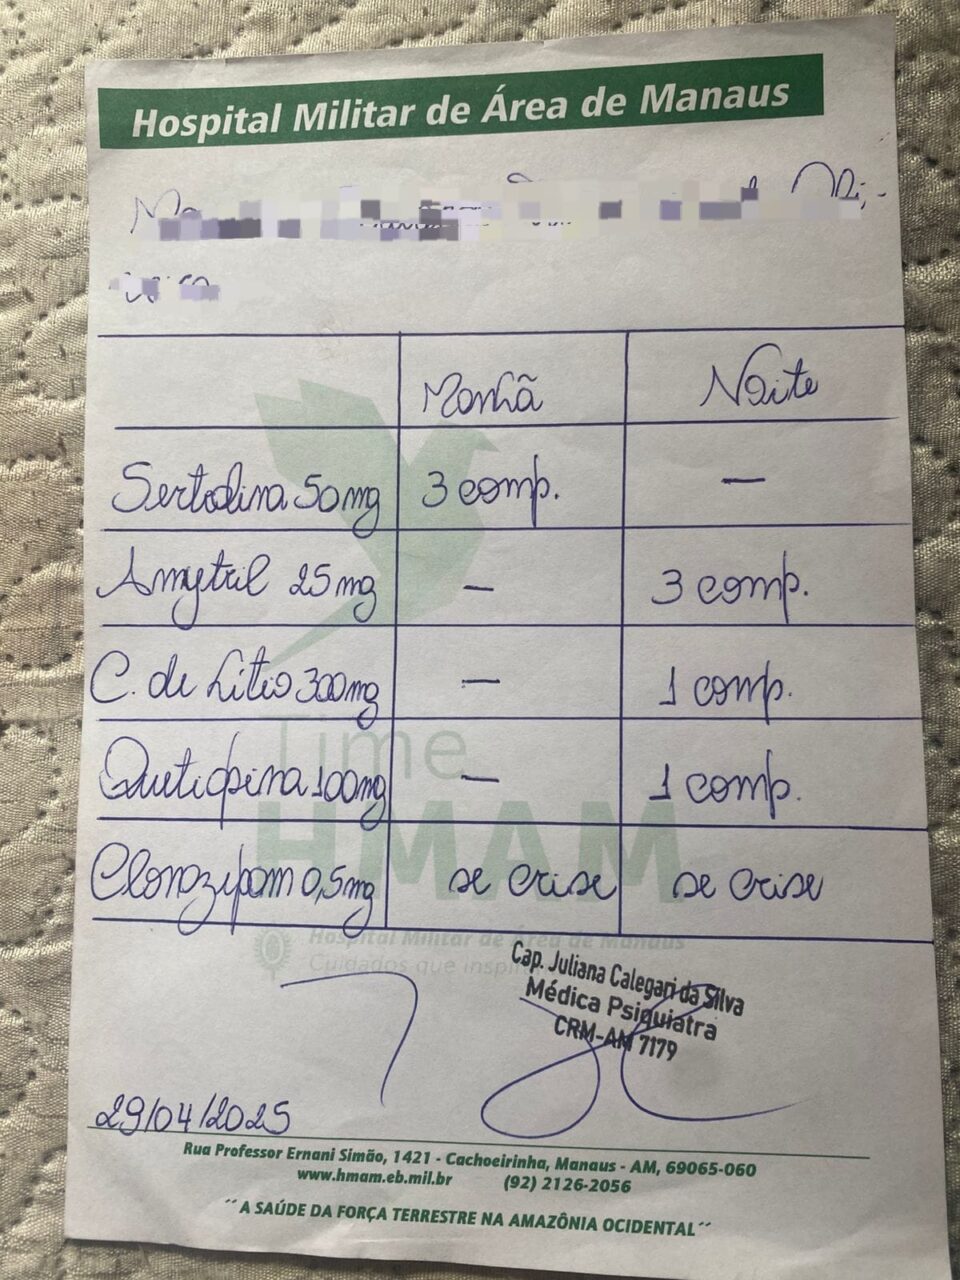 Hospital Militar de Área de Manaus
Manhã Noite
Sertralina 50mg 3 comp. —
Amytril 25mg — 3 comp.
C. de Lítio 300mg — 1 comp.
Quetiapina 100mg — 1 comp.
Clonazepam 0,5mg se crise se crise
Time
HMAM
Hospital Militar de Área de Manaus
Cuidados que
Cap. Juliana Calegari da Silva
Médica Psiquiatra
CRM-AM 7179
29/04/2025
Rua Professor Ernani Simão, 1421 - Cachoeirinha, Manaus - AM, 69065-060
www.hmam.eb.mil.br (92) 2126-2056
´´A SAÚDE DA FORÇA TERRESTRE NA AMAZÔNIA OCIDENTAL´´